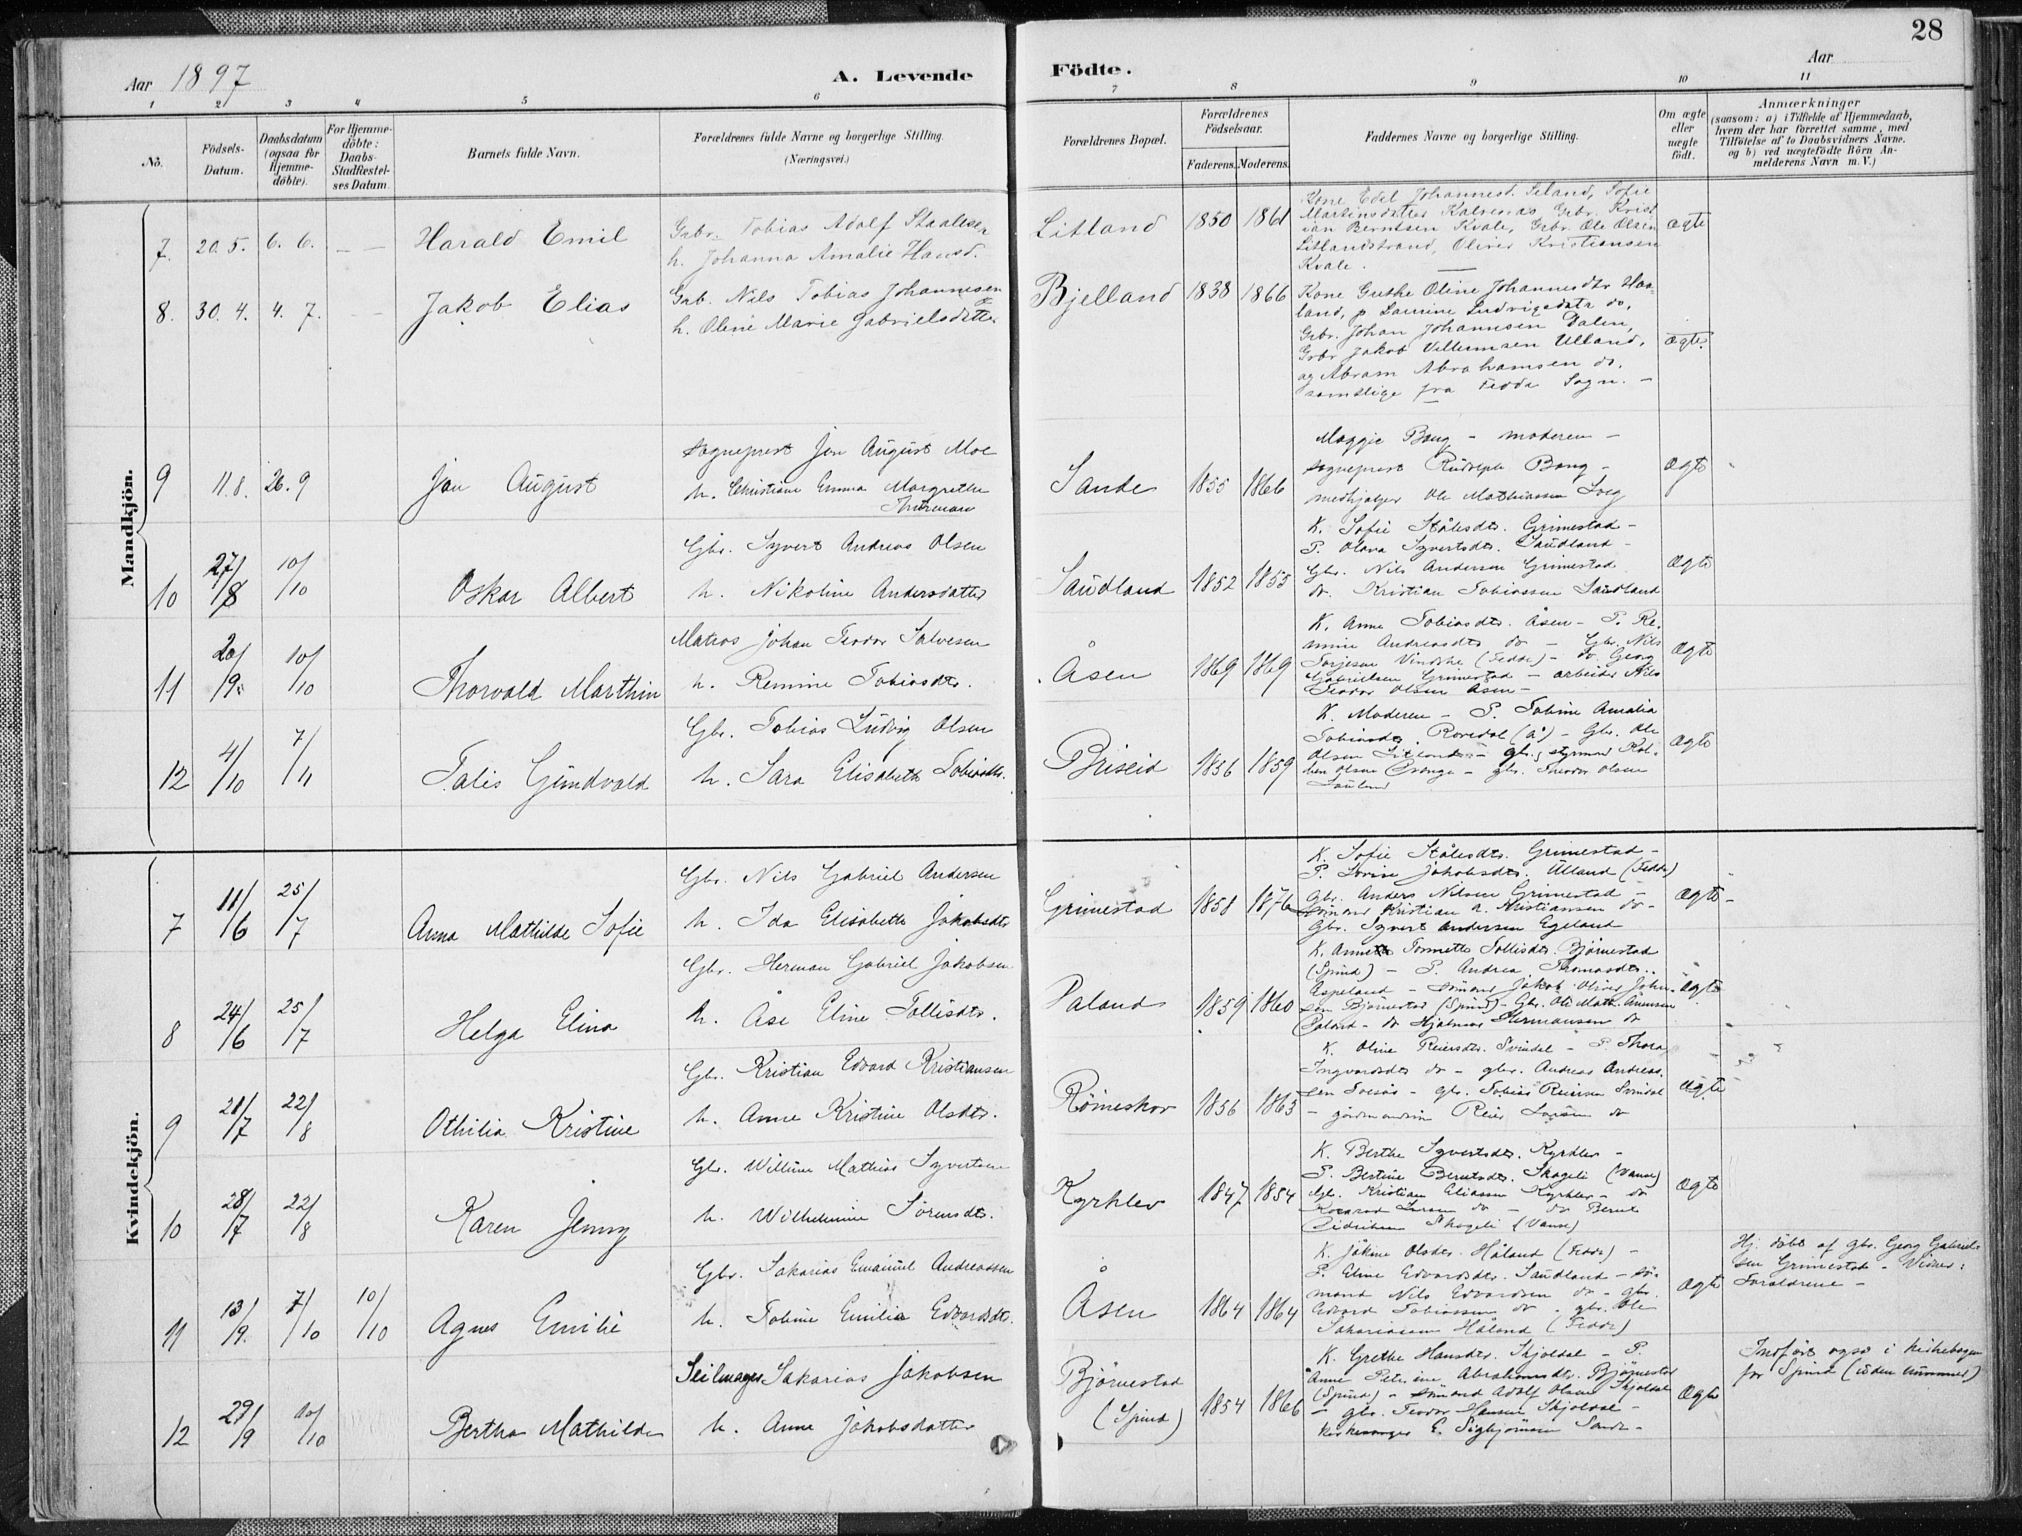 28
Aar 1897
A. Levende Födte.
Aar
1 2 3 4 5 6 7 8 9 10 11
No.
Födsels-Datum.
Daabsdatum (ogsaa for Hjemmedöbte).
For Hjemmedöbte: Daabs-Stadfæstelses Datum.
Barnets fulde Navn.
Forældrenes fulde Navne og borgerlige Stilling. (Næringsvei.)
Forældrenes Bopæl.
Forældrenes Födselsaar.
Faderens. Moderens.
Faddernes Navne og borgerlige Stilling.
Om ægte eller uægte födt.
Anmærkninger
(saasom: a) i Tilfælde af Hjemmedaab,
hvem der har forrettet samme, med
Tilföielse af to Daabsvidners Navne.
og b) ved uægtefödte Börn An-
melderens Navn m. V.)
Mandkjön.
7. 20. 5. 6. 6. Harald Emil
Gbr. Tobias Adolf Staalesen
h. Johanna Amalie Hansd.
Litland 1850 1861
Kone Edel Johannesd. Seland, Sofie
Martinsdatter Kalvenas Gbr. Krist
ian Berntsen Kvale, Gbr. Ole Olsen
Litlandstrand, Oliver Kristiansen
Kvale.
ægte
8. 30. 4. 4. 7. Jakob Elias
Gab. Nils Tobias Johannesen
h. Oline Marie Gabrielsdatter
Bjelland 1838 1866
Kone Guthe Oline Johannesdtr Haa-
land, p Laurine Ludvigsdatr do,
Gbr. Johan Johannsen Dalen,
Gbr Jakob Villumsen Ulland,
og Abram Abrahamsen do.
samtlige fra Fedde Sogn. -
ægte.
9 11. 8. 26. 9 Jon August
Sogneprest Jon August Moe
h. Christiane Emma Margrethe
Thurman
Sande 1855 1866
Maggie Bang - moderen -
sogneprest Rudolph Bang -
medhjælper Ole Mathiassen
Ægte
10 27/8 10/10 Oskar Albert
Gbr. Syvert Andreas Olsen
h. Nikoline Andersdatter
Saudland 1852 1855
K. Sofie Stålesdtr. Grimestad -
P. Olava Syvertsdtr. Saudland -
Gbr. Nils Andersen Grimestad
do. Kristian Tobiassen Saudland
Ægte
11 20/9. 10/10 Thorvald Marthin
Matros Johan Teodor Salvesen
h. Remine Tobiasdtr.
Åsen 1869 1869
K. Anne Tobiasdtr. Åsen - P. Re-
mine Andreasdtr do - Gbr. Nils
Torjesen Vindhe (Fedde) - do Georg
Gabrielsen Grimestad - arbeider Nils
Teodor Olsen Åsen -
Ægte
12 4/10 7/11 Talis Gundvald
Gbr. Tobias Ludvig Olsen
h. Sara Elisabeth Tobiasdtr.
Briseid 1856 1859
K. Moderen - P. Tobine Amalia
Tobiasdtr. Rovedal (å) - Gbr. Ole
Olsen - gbr. styrmand
Olsen - gbr. Theodor Olsen
Ægte
Kvindekjön.
7 11/6 25/7 Anna Mathilde Sofie
Gbr. Nils Gabriel Andersen
h. Ida Elisabeth Jakobsdtr
Grimestad 1858 1876
K. Sofie Stålesdtr. Grimestad -
P. Lovise Jakobsdtr. Ulland (Fedde)
Gbr. Anders Nilsen Grimestad -
Sömand Kristian A. Kristiansen do -
Gbr. Syvert Andersen Egeland
Ægte -
8 24/6 25/7 Helga Elina
Gbr. Herman Gabriel Jakobsen
h. Åse Eline Tollisdtr.
Paland 1859 1860
K. Annette Tonnette Tollisdtr. Björnestad
(Spind) - P. Andrea Thomasdtr.
Aspeland - sömand Jakob Oliver John-
sen Björnestad (Spind) - Gbr. Ole Math.
Paland - do Hjalmar Hermansen do
Ægte
9 21/7 22/8 Othilia Kristine
Gbr. Kristian Edvard Kristiansen
h. Anne Kristine Olsdtr.
Römeskor 1856 1863
K. Oline Reiersdtr. Svindal - P. Thora
Ingvardsdtr do - gbr. Andreas Andreas-
sen - gbr. Tobias Reiersen Svindal
- Reier do
Ægte
10 28/7 22/8 Karen Jenny
Gbr. Willum Mathias Syvertsen
h. Wilhelmine Sörensdtr.
Kyrklev 1847 1854
K. Berthe Syvertsdtr. Kyrklev -
P. Bertine Berntsdtr. Skogeli (Vanse)
Gbr. Kristian Eliassen Kyrklev - do
Larsen do - do Bernt
Didriksen Skogeli (Vanse)
Ægte
11 13/9. 7/10 10/10 Agnes Emilie
Gbr. Sakarias Emanuel Andreassen
h. Tobine Emilie Edvardsdtr.
Åsen 1864 1864
K. Jåkine Olsdtr. Håland (Fedde) -
P. Eline Edvardsdtr. Saudland - sö-
mand Nils Edvardsen do - gbr.
Edvard Tobiassen do - gbr. Ole
Sakariassen Håland (Fedde)
Ægte
Hj. döbt af gbr. Georg Gabriel-
sen Grimestad - Vidner:
Foræeldrene -
12 29/9 10/10 Bertha Mathilde
Seilmager Sakarias Jakobsen
h. Anne Jakobsdatter
Björnestad
(Spind) 1854 1866
K. Grethe Hansdtr. Skjoldal - P.
Anne Petrine Abrahamsdtr. Björnestad
(Spind) - sömand Adolf Olsen Skjoldal
- gbr. Teodor Hansen Skjoldal -
Kirkesanger E. Sigbjörnsen Sande -
Ægte
Indfört også i kirkebogen
for Spind (uden nummer)